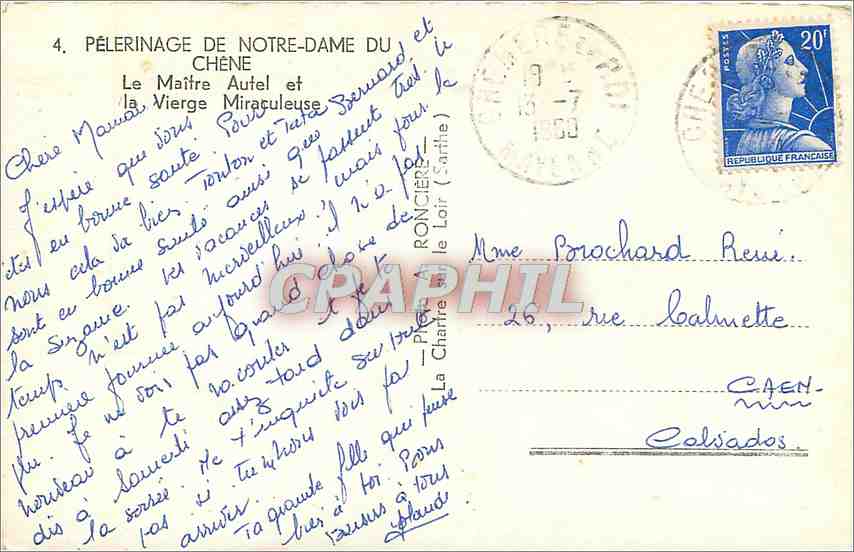 4. PÈLERINAGE DE NOTRE-DAME DU
CHÊNE
Le Maître Autel et
la Vierge Miraculeuse
Chère Maman
J'espère que vous
êtes en bonne santé. Pour
nous cela va bien. Tonton et Tata Bernard et
sont en bonne santé ainsi que
la Suzanne. Les vacances se passent très
temps n'est pas merveilleux mais pour la
première journée aujourd'hui il n'a pas
plu. Je ne vois pas grand chose de
nouveau à te raconter. Je te
dis à Samedi assez tard dans
la soirée. Ne t'inquiète surtout
pas si nous
arriver. Ta grande fille qui pense
bien à toi. Bons
Baisers à tous
Yolande
Photo A. RONCIÈRE
La Chartre sur le Loir (Sarthe)
1960
MAYENNE
POSTES
20F
REPUBLIQUE FRANCAISE
Mme Brochard René.
26, rue Calmette
CAEN-
Calvados.
CPAPHIL